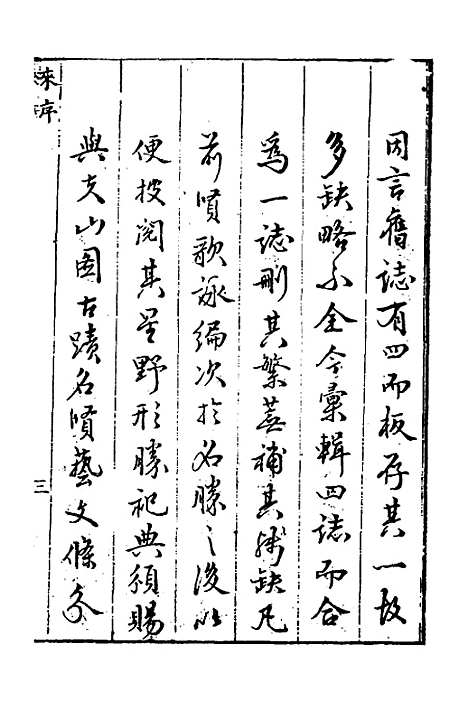 因言舊誌有四而板存其一故
多缺略不全今彙輯四誌而合
爲一誌刪其繁蕪補其殘缺凡
前賢歌詠編次於名勝之後以
便披閱其星野形勝祀典頒賜
與夫山圖古蹟名賢藝文條分
來序
三